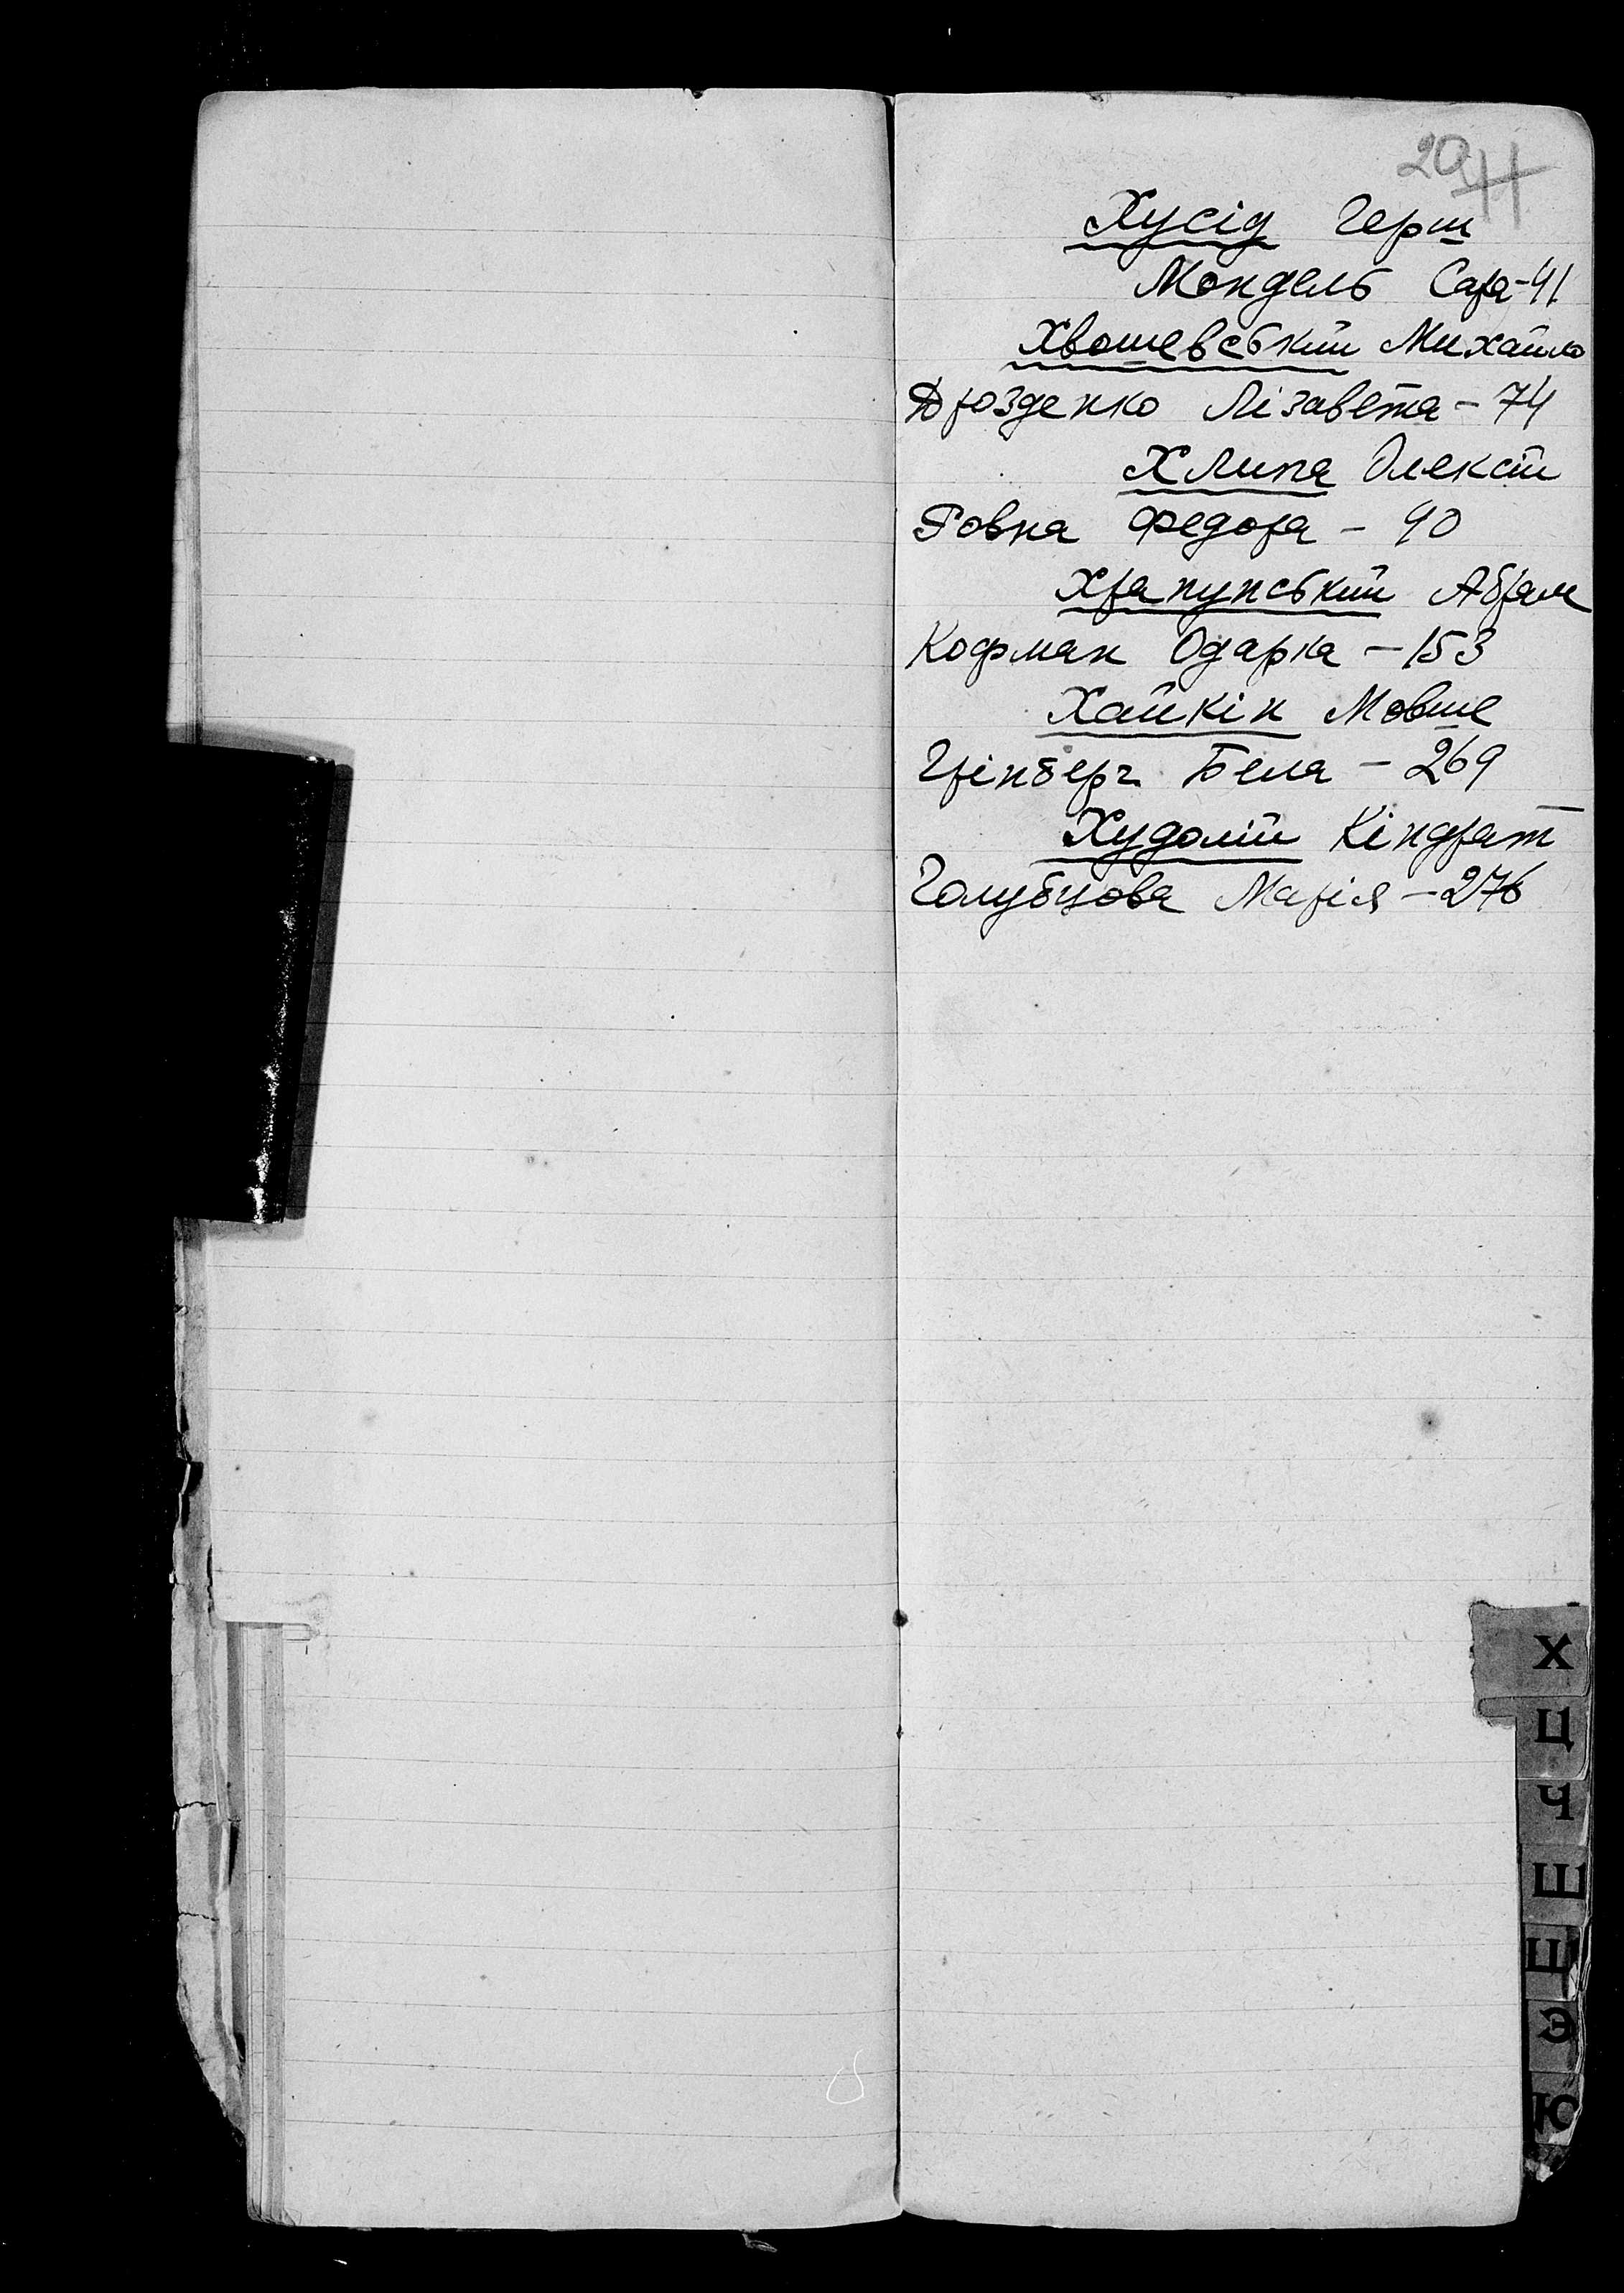 20
Хусід Герш
Мондель Сара-41
Хвошевський Михайло
Дрозденко Лізавета - 74
Хлипа Олексій
Ровна Федора - 90
Храпунський Абрам
Кофман Одарка - 153
Хайкін Мовше
Грінберг Бела - 269
Худолій Кіндрат
Голубцова Марія - 276
Х
Ц
Ч
Ш
Щ
Э
Ю